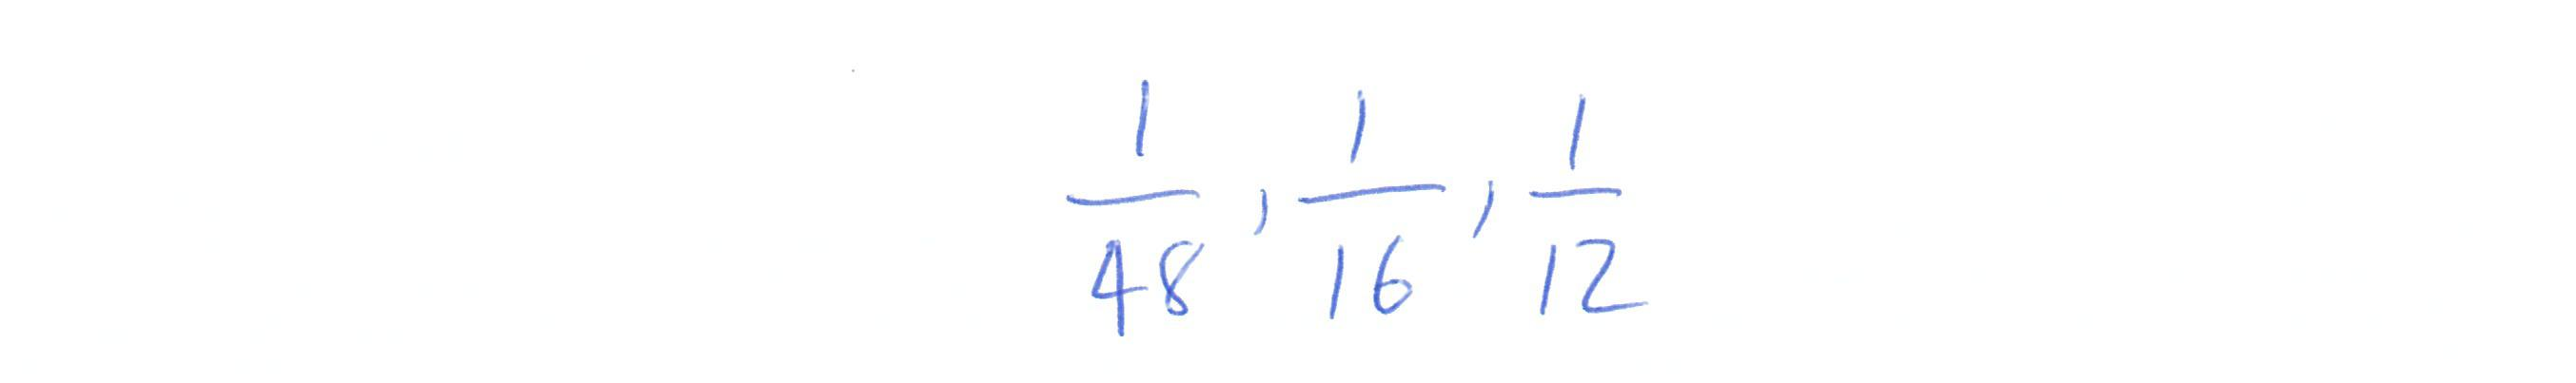 1/48, 1/16, 1/12